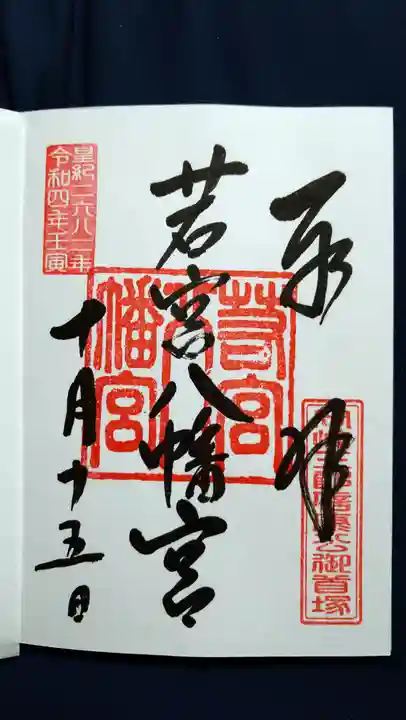 奉拝
岡崎三郎信康公御首塚
若宮八幡宮
若宮
八
幡宮
皇紀二六八二年
令和四年壬寅
十月十五日